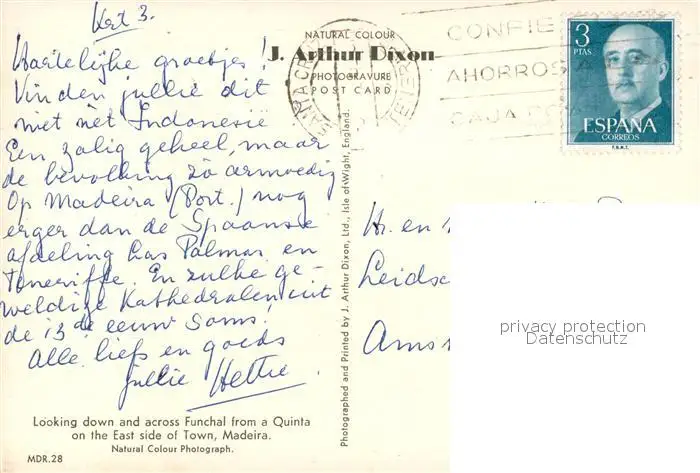 Kert 3.
Hartelijke groetjes!
Vinden jullie dit
niet nèt Indonesië
Een zalig geheel, maar
de bevolking zo armoedig
Op Madeira (Port.) nog
erger dan de Spaanse
afdeling Las Palmas en
Teneriffe. En zulke ge-
weldige Kathedralen uit
de 13de eeuw soms!
Alle liefs en goeds
jullie Hettie
Looking down and across Funchal from a Quinta
on the East side of Town, Madeira.
Natural Colour Photograph.
MDR.28
NATURAL COLOUR
J. Arthur Dixon
PHOTOGRAVURE
POST CARD
Photographed and Printed by J. Arthur Dixon, Ltd., Isle of Wight, England.
CONFIE
AHORROS
CAJA
3
PTAS
ESPAÑA
CORREOS
F.N.M.T.
Hr. en
Leidsc
Ams
privacy protection
Datenschutz